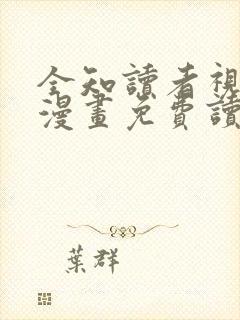 全知讀者視
漫畫免費讀
葉群